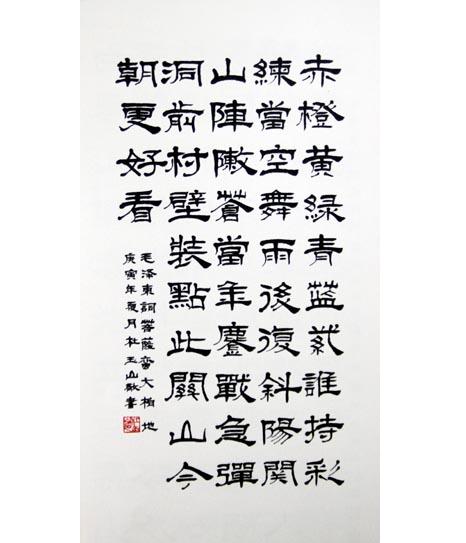 赤橙黄緑青蓝紫誰持彩
練當空舞雨後復斜陽関
山陣敶蒼當年鏖戰急彈
洞前村壁裝點此關山今
朝更好看
毛泽東詞菩薩蛮大柏地
庚寅年夏月杜玉山敬書